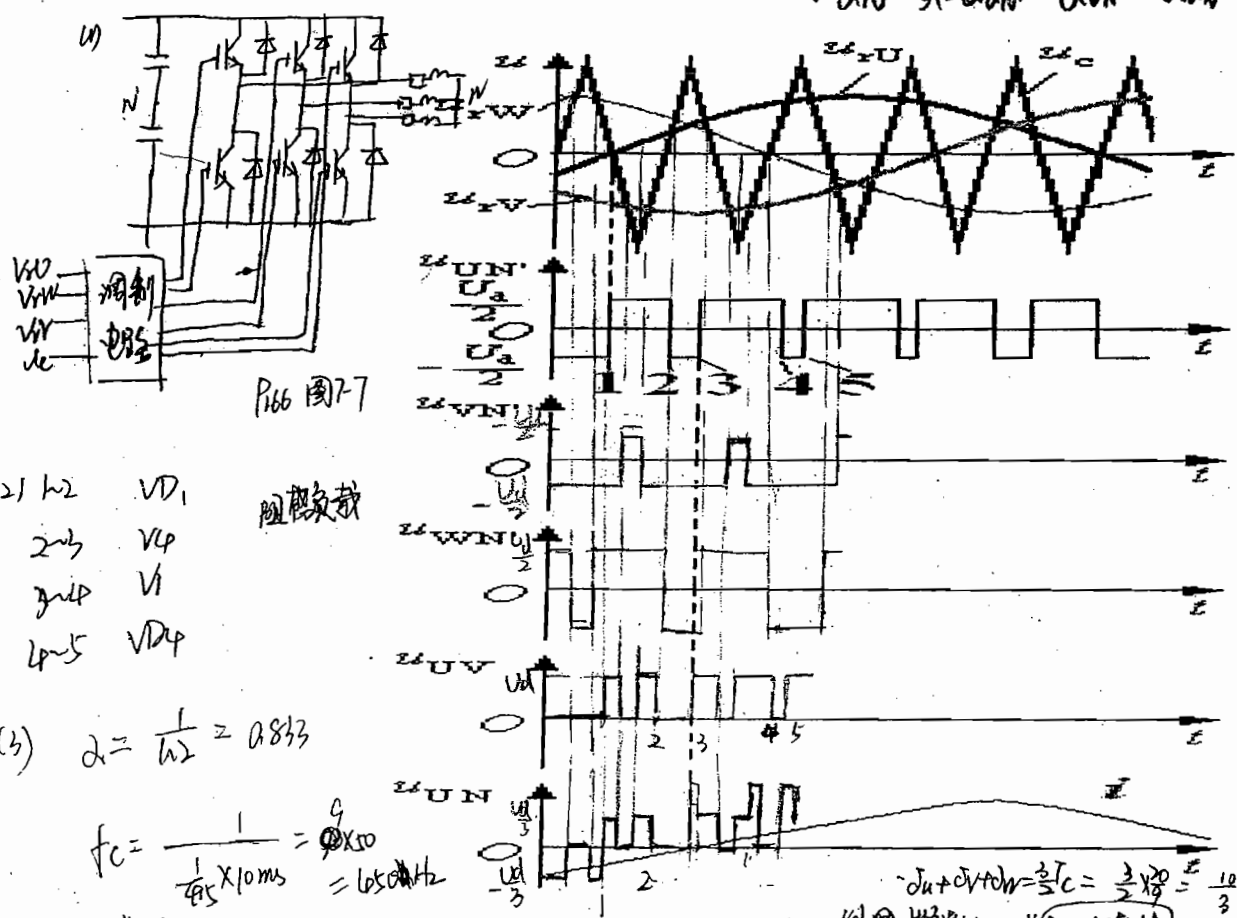 (1)
N'
N
VrU
VrW
VrV
uc
调制
电路
P166 图7-7
2) 1~2 VD1
2~3 V4
3~4 V1
4~5 VD4
阻感负载
(3) α = 1/1.2 = 0.833
fc = 1 / (1/4.5 × 10ms) = 9×50
= 450Hz
u
u r U
u c
r W
O
u r V
t
u UN'
U d/2
O
- U d/2
t
1 2 3 4 5
u VN'
O
- Ud/2
t
u WN'
Ud/2
O
t
u UV
Ud
O
2 3 4 5
t
u UN
Ud/3
O
- Ud/3
2
1
t
δu+δv+δw = 3/2 Tc = 3/2 × 20/9 = 10/3